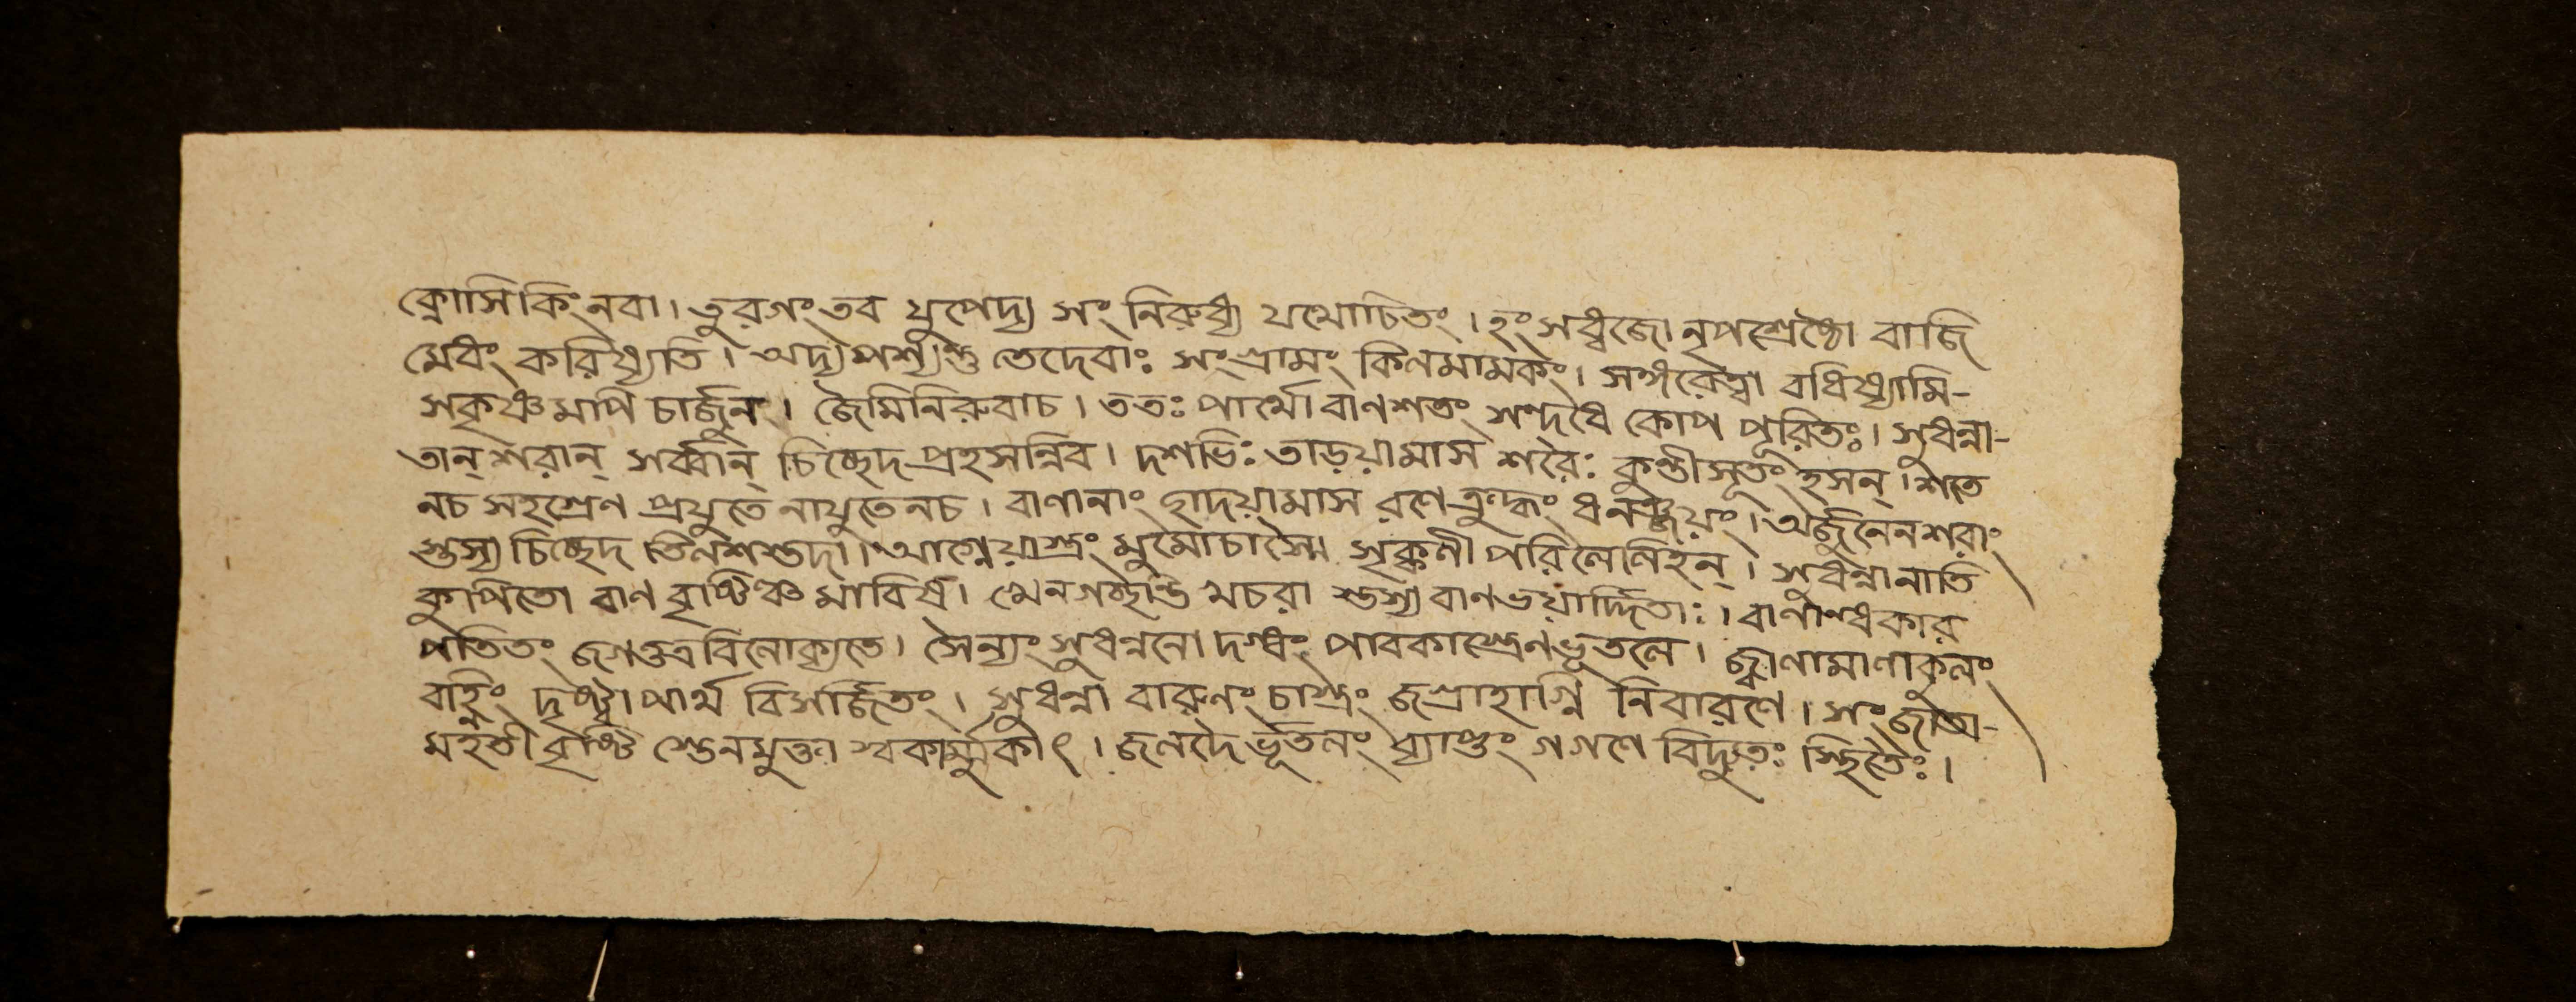 ক্নোসি কিং নবা। তুরগং তব যুপেদ্য সং নিরুধ্য যথোচিতং। হংসধ্বজো নৃপশ্রেষ্ঠো বাজি
মেধং করিষ্যতি। অদ্য পশ্যন্তু তে দেবাঃ সংগ্রামং কিল মামকং। সঙ্গরে ত্বা বধিষ্যামি-
সকৃষ্ণমপি চার্জুন। জৈমিনিরুবাচ। ততঃ পার্থো বাণশতং সন্দধে কোপ পূরিতঃ। সুধন্বা-
তান্ শরান্ সর্ব্বান্ চিচ্ছেদ প্রহসন্নিব। দশভিঃ তাড়য়ামাস শরৈঃ কুন্তীসুতং হসন্। শতে
নচ সহস্রেণ প্রযুতে নাযুতেনচ। বাণানাং ছাদয়ামাস রণে ক্রুদ্ধং ধনঞ্জয়ং। অর্জুনেন শরাং
স্তস্য চিচ্ছেদ তিলশস্তদা। আগ্নেয়াস্ত্রং মুমোচাস্মৈ সৃক্কণী পরিলেলিহন্। সুধন্বানাতি
কুপিতো বাণ বৃষ্টিঞ্চ মাবিষ। খেনগচ্ছন্তি খচরা স্তস্য বাণভয়ার্দ্দিতাঃ। বাণান্ধকার
পতিতং জগত্তত্র বিলোক্যতে। সৈন্যং সুধন্বনো দগ্ধং পাবকাস্ত্রেণ ভূতলে। জ্বালামালাকুলং
বহ্নিং দৃষ্ট্বা পার্থ বিসর্জিতং। সুধন্বা বারুণং চাস্ত্রং জগ্রাহাগ্নি নিবারণে। সংজাতা-
মহতী বৃষ্টি স্তেনমুক্তা স্বকার্ম্মুকাৎ। জলদৈ র্ভূতলং ব্যাপ্তং গগণে বিদ্যুতঃ স্থিতৈঃ।